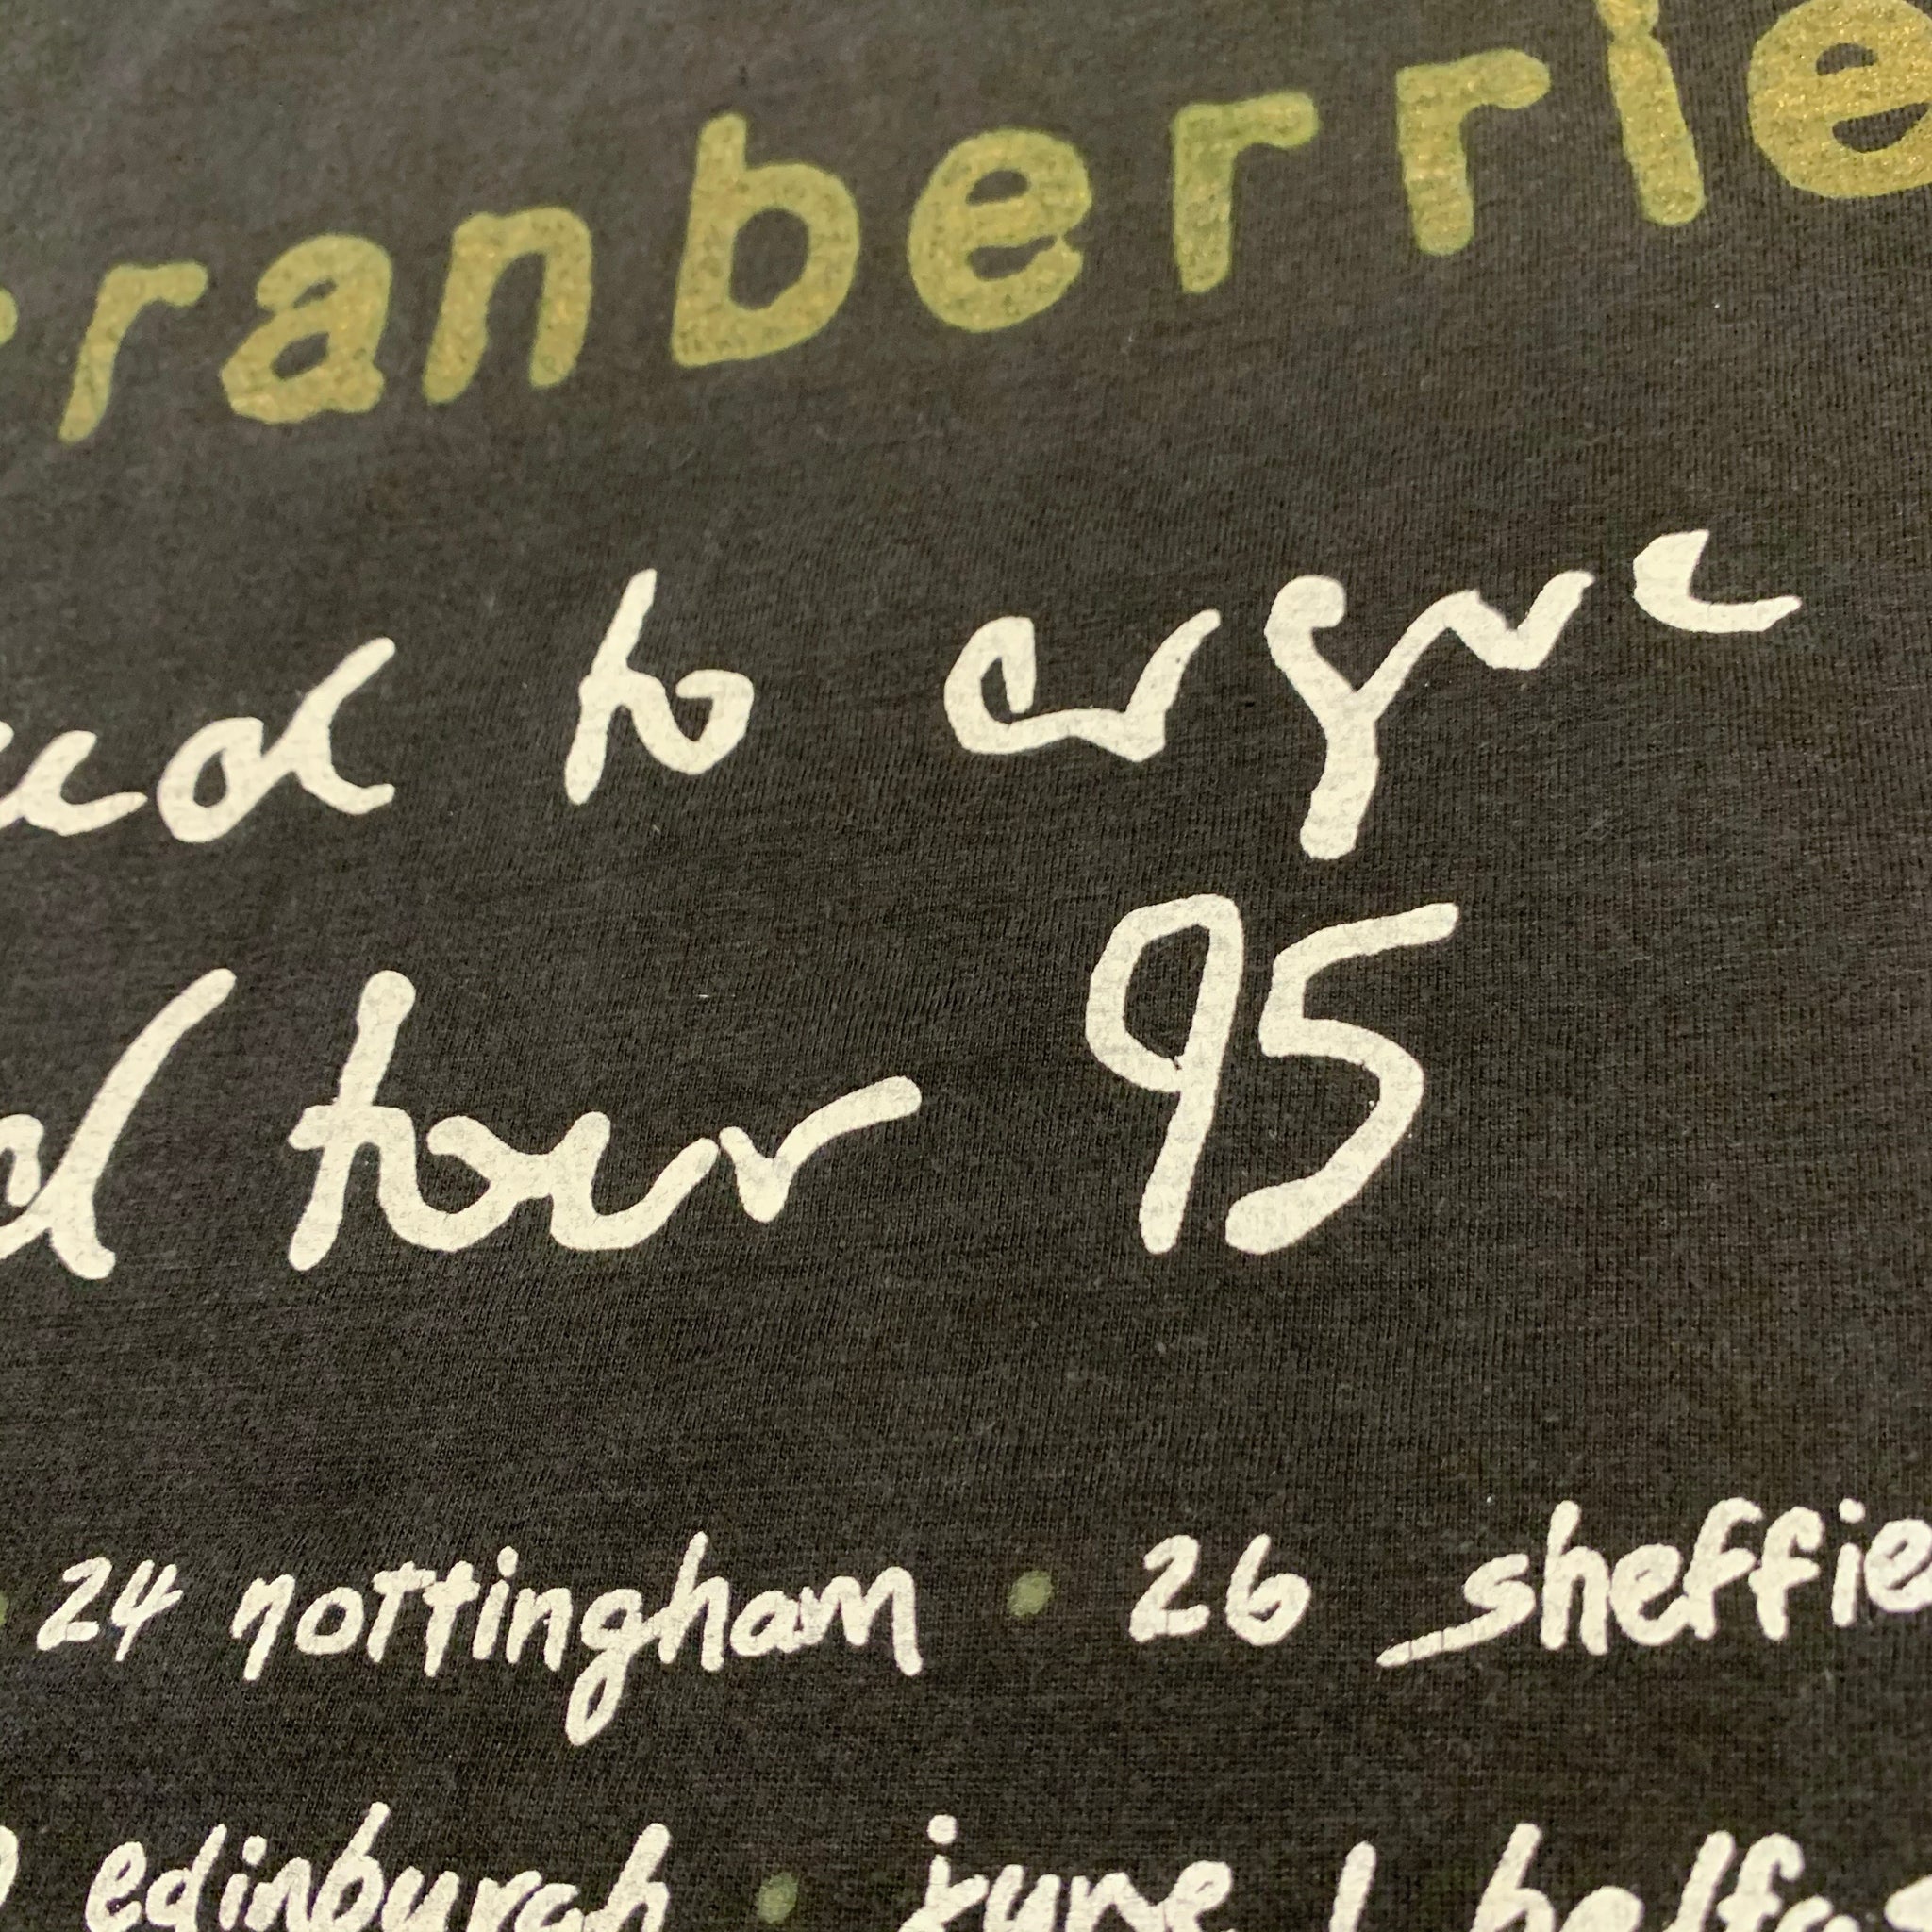 cranberrie
eed to argue
ld tour 95
24 nottingham • 26 sheffie
edinburgh • june 1 belfas